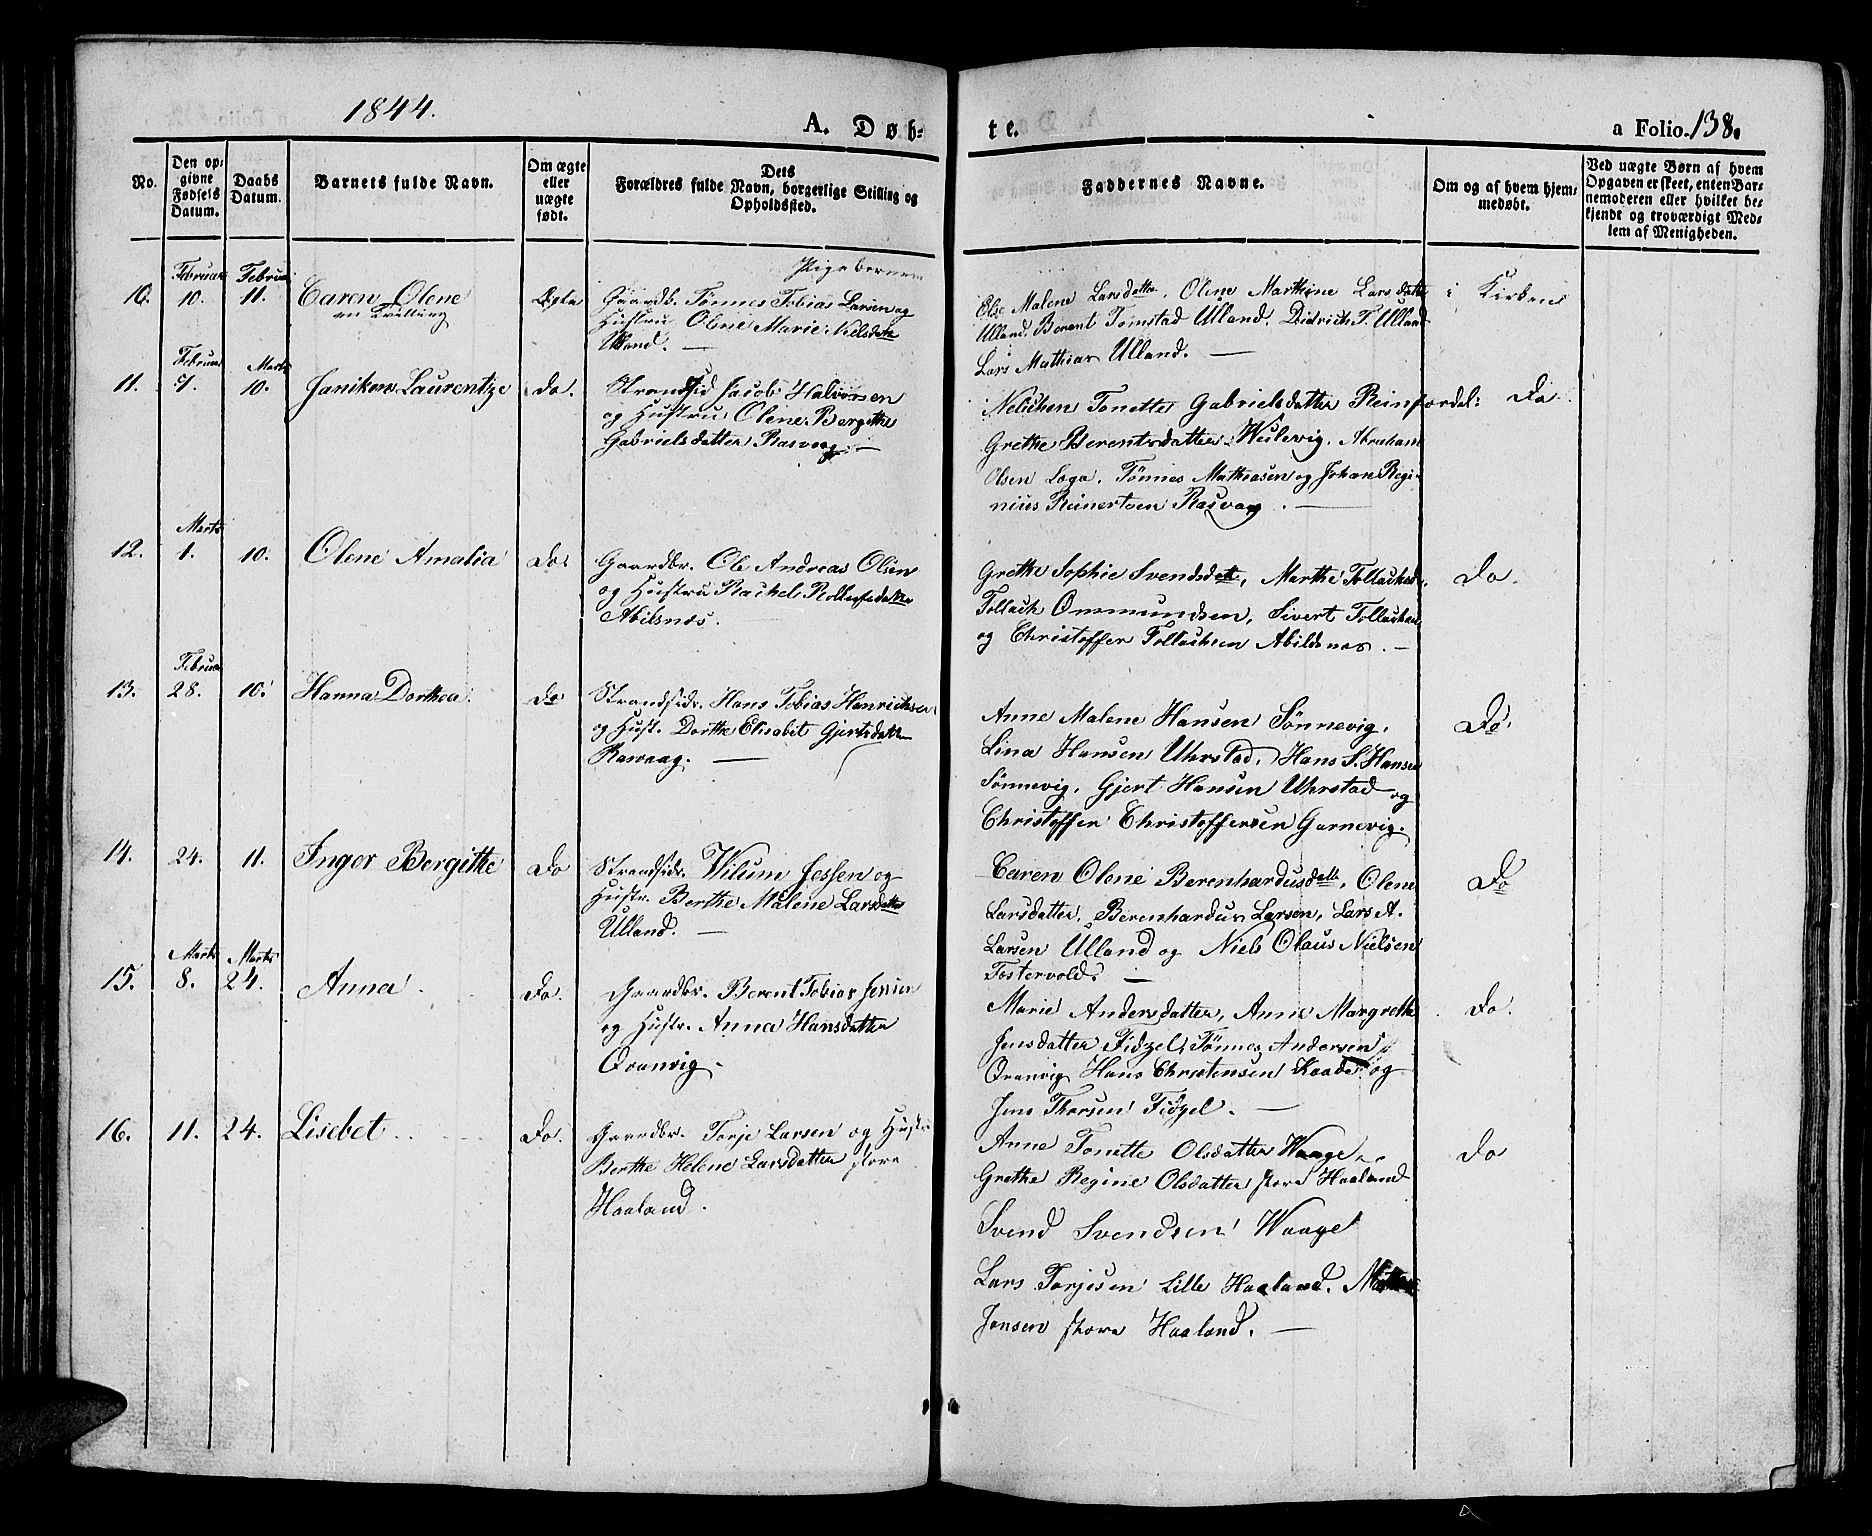 1844.
A. Døb-
te.
a Folio. 138.
No.
Den op-
givne
Fødsels
Datum.
Daabs
Datum.
Barnets fulde Navn.
Om ægte
eller
uægte
født.
Dets
Forældres fulde Navn, borgerlige Stilling og
Opholdssted.
Faddernes Navne.
Om og af hvem hjem-
medøbt.
Ved uægte Børn af hvem
Opgaven er skeet, enten Bar-
nemoderen eller hvilket be-
kjendt og troværdigt Med-
lem af Menigheden.
Pigebørnene
Februar Februar
10. 10. 11. Caren Olene Ægte Gaardb. Tønnes Tobias Larsen og
en Tvilling Hustru Olene Marie Nielsdatt
Ulland. —
Else Malene Larsdatter, Olene Marthine Larsdatter i Kirken
Ulland, Berent Tomstad Ulland, Didrich T. Ulland
Lars Mathias Ulland. —
Februar Marts
11. 7. 10. Janikem Laurentze Do. Strandsid Jacob Halvorsen
og Hustru Olene Bergithe
Gabrielsdatter Rasvaag. —
Nelichen Tonette Gabrielsdatter Reinfordal: Do
Grethe Berentsdatter Wulevig. Abraham
Olsen Loga. Tønnes Mathiasen og Johan Regi-
nius Reinertsen Rasvaag. —
Marts
12. 1. 10. Olene Amalia Do. Gaardbr. Ole Andreas Olsen
og Hustru Rachel Rollefsdatter
Abilsnæs.
Grethe Sophie Svendsdatt, Marthe Tollachsd. Do.
Tollach Ommundsen, Sivert Tollachsen
og Christoffer Tollachsen Abildsnæs. —
Februar
13. 28. 10. Hanna Dorthea. Do Strandsidr. Hans Tobias Henrichsen
og Hust. Dorthe Elisabet Gjertsdatter
Rasvaag. —
Anne Malene Hansen Sønnevig, Do.
Lina Hansen Uhrstad, Hans S. Hansen
Sønnevig, Gjert Hansen Uhrstad og
Christoffer Christoffersen Garnevig.
14. 24. 11. Inger Bergithe Do Strandsidr. Wilum Jessen og
Hustr. Berthe Malene Larsdatter
Ulland. —
Caren Olene Berenhardusdatt, Olene Do
Larsdatter, Berenhardus Larsen, Lars A.
Larsen Ulland og Niels Olaus Nielsen
Fostervold. —
Marts Marts
15. 8. 24. Anna Do. Gaardbr. Berent Tobias Jensen
og Hustr. Anna Hansdatter
Øranvig.
Marie Andersdatter, Anne Margrethe Do.
Jensdatter Fidzel, Tønnes Andersen
Øranvig Hans Christensen Kaade og
Jens Thorsen Fidzel. —
16. 11. 24. Lisebet Do. Gaardbr. Torje Larsen og Hustr
Berthe Helene Larsdatter store
Haaland.
Anne Tonette Olsdatter Waage, Do
Grethe Regine Olsdatter store Haaland
Svend Svendsen Waage
Lars Torjesen Lille Haaland.
Jensen store Haaland. —